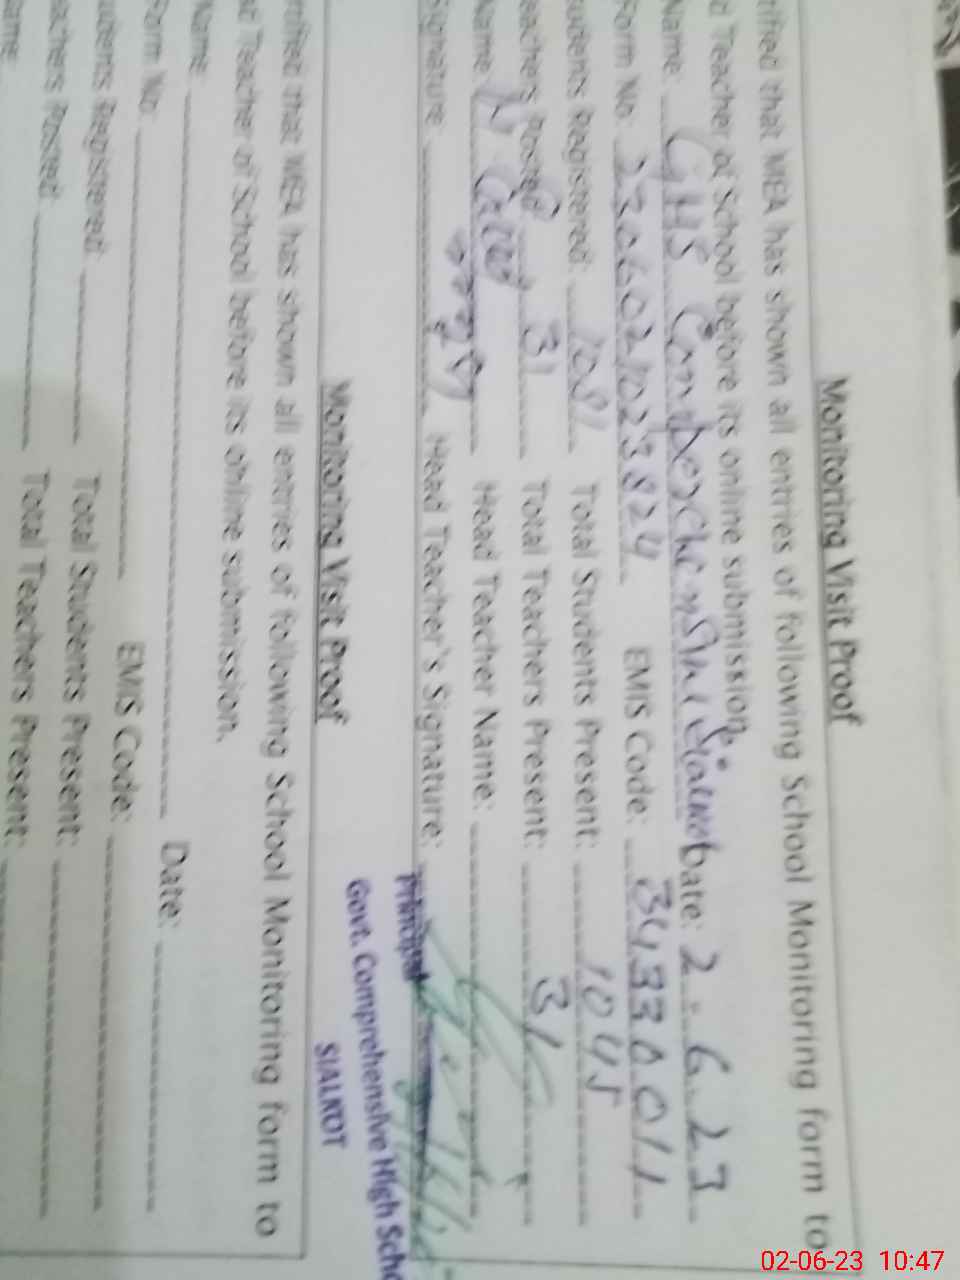 Monitoring Visit Proof
tified that MEA has shown all entries of following School Monitoring form to
d Teacher of School before its online submission.
Name: GHS Comprehensive Sialkot Date: 2-6-23
Form No: EMIS Code: 34330011
udents Registered: 1081 Total Students Present: 1045
eachers Posted: 31 Total Teachers Present: 31
Name: Head Teacher Name:
Signature: Head Teacher's Signature:
Principal
Govt. Comprehensive High Scho
SIALKOT
Monitoring Visit Proof
rtified that MEA has shown all entries of following School Monitoring form to
ad Teacher of School before its online submission.
Name: Date:
Form No: EMIS Code:
udents Registered: Total Students Present:
achers Posted: Total Teachers Present:
ame:
02-06-23 10:47